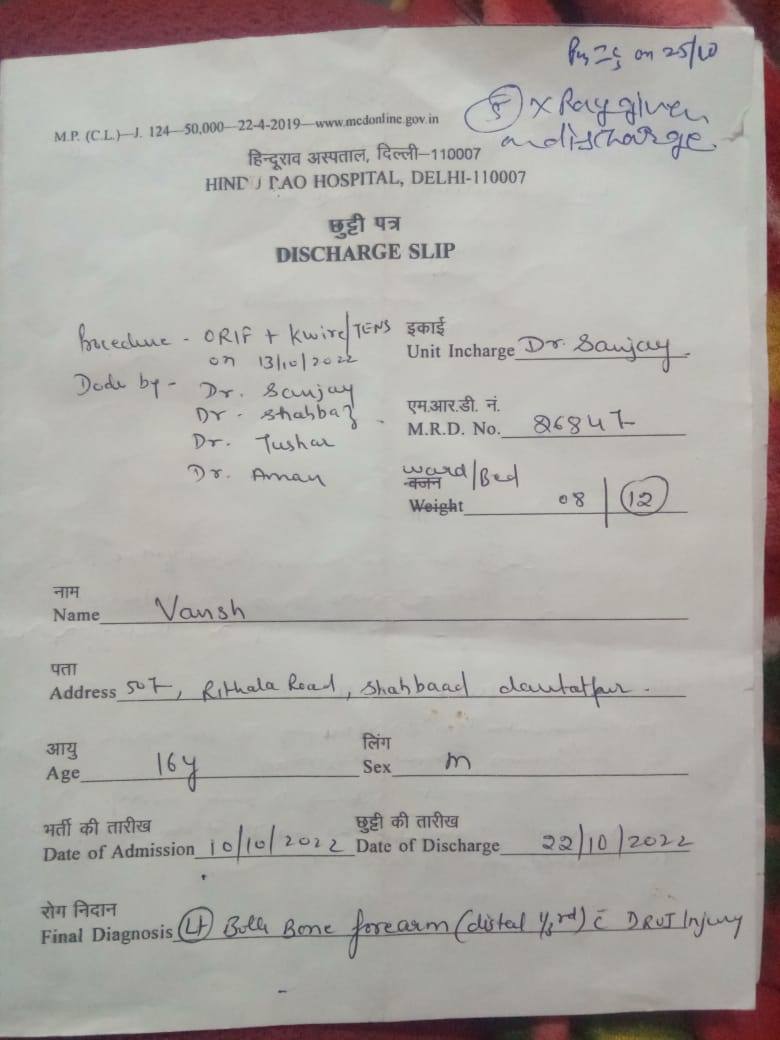 on 25/10
5 X Ray given
on discharge
M.P. (C.L.)—J. 124—50,000—22-4-2019—www.mcdonline.gov.in
हिन्दूराव अस्पताल, दिल्ली–110007
HINDU RAO HOSPITAL, DELHI-110007
छुट्टी पत्र
DISCHARGE SLIP
Procedure - ORIF + Kwire/TENS
on 13/10/2022
Dode by - Dr. Sanjay
Dr. Shahbaz
Dr. Tushar
Dr. Aman
इकाई
Unit Incharge Dr. Sanjay.
एम.आर.डी. नं.
M.R.D. No. 26847
ward/Bed
वजन
Weight 08 | 12
नाम
Name Vansh
पता
Address 507, Rithala Road, Shahbaad daulatpur.
आयु
Age 16y
लिंग
Sex m
भर्ती की तारीख
Date of Admission 10/10/2022
छुट्टी की तारीख
Date of Discharge 22/10/2022
रोग निदान
Final Diagnosis Lt Both Bone forearm (distal 1/3rd) c̄ DRUJ Injury